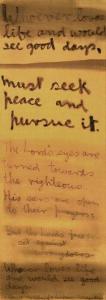 Whoever loves
life and would
see good days,
must seek
peace and
pursue it.
The Lord's eyes are
turned towards
the righteous
His ears are open
to their prayers.
But
set against
Whoever loves
life and would
see good days